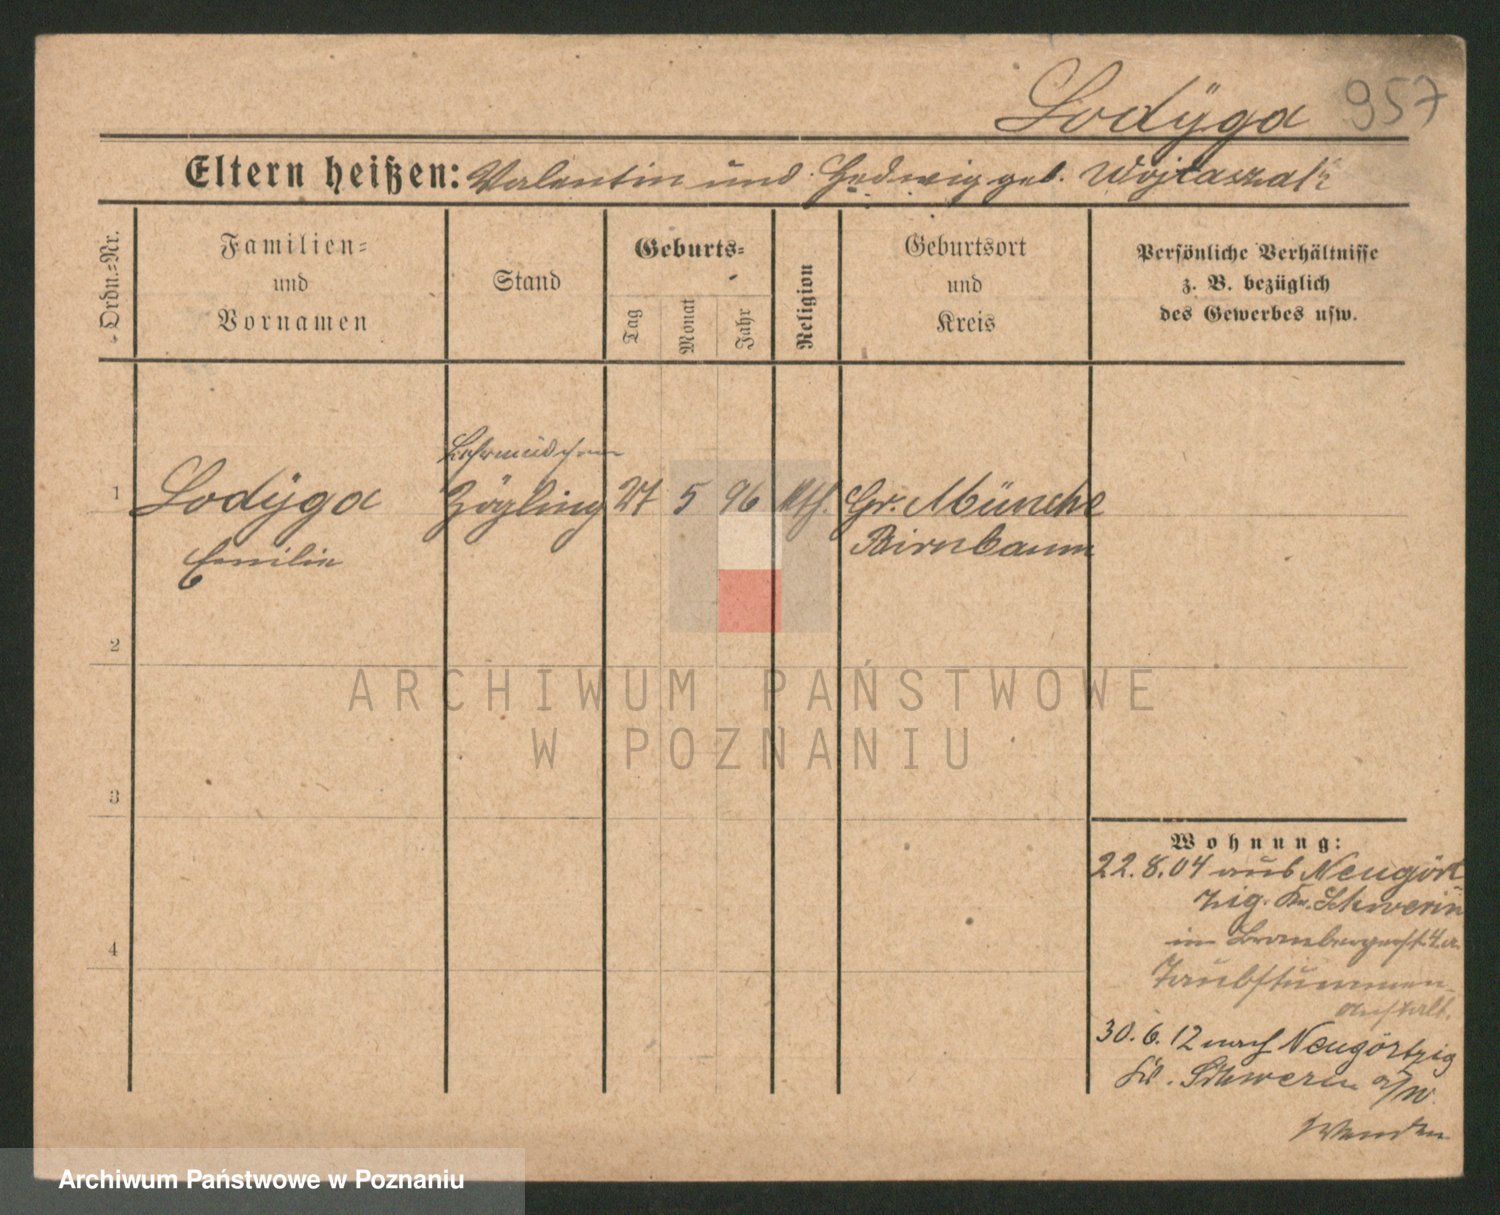 Lodÿga 957
Eltern heißen: Valentin und Hedwig geb. Wojtaszak
Ordn.=Nr.
Familien=
und
Vornamen
Stand
Geburts=
Tag
Monat
Jahr
Religion
Geburtsort
und
Kreis
Persönliche Verhältnisse
z. B. bezüglich
des Gewerbes usw.
1 Lodÿga Zögling 27 5 96 kth. Gr. Münche
Emilie Birnbaum
2
3
4
Wohnung:
22.8.04 aus Neugört
zig. Kr. Schwerin
in Brombergerst. 4.a.
Taubstummen-
anstalt.
30.6.12 nach Neugörtzig
Kr. Schwerin a/W.
ARCHIWUM PAŃSTWOWE
W POZNANIU
Archiwum Państwowe w Poznaniu